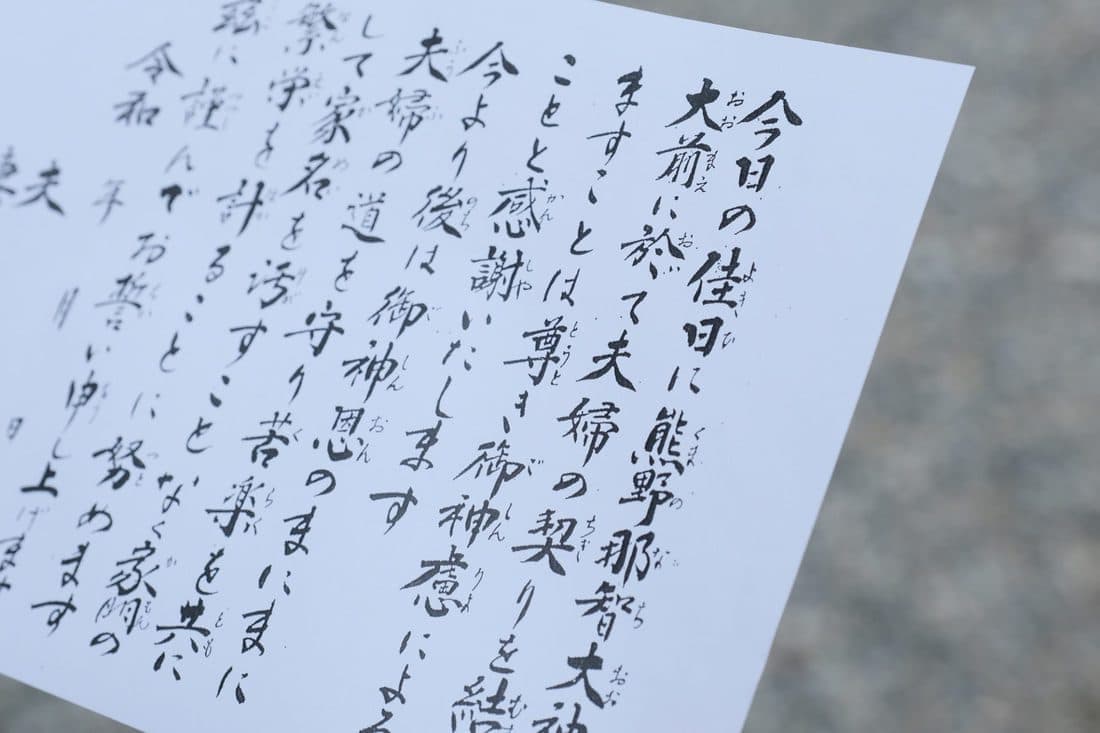 今日の佳日に熊野那智大神
大前に於て夫婦の契りを結
ますことは尊き御神慮による
ことと感謝いたします
今より後は御神恩のまにまに
夫婦の道を守り苦楽を共に
して家名を汚すことなく家門の
繁栄を計ることに努めます
茲に謹んでお誓い申し上げます
令和 年 月 日
夫
妻